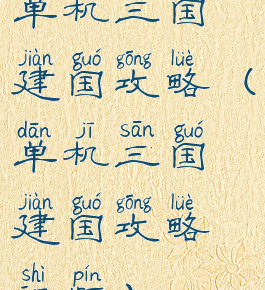 单机三国
jiàn guó gōng lüè
建国攻略（
dān jī sān guó
单机三国
jiàn guó gōng lüè
建国攻略
shì pín